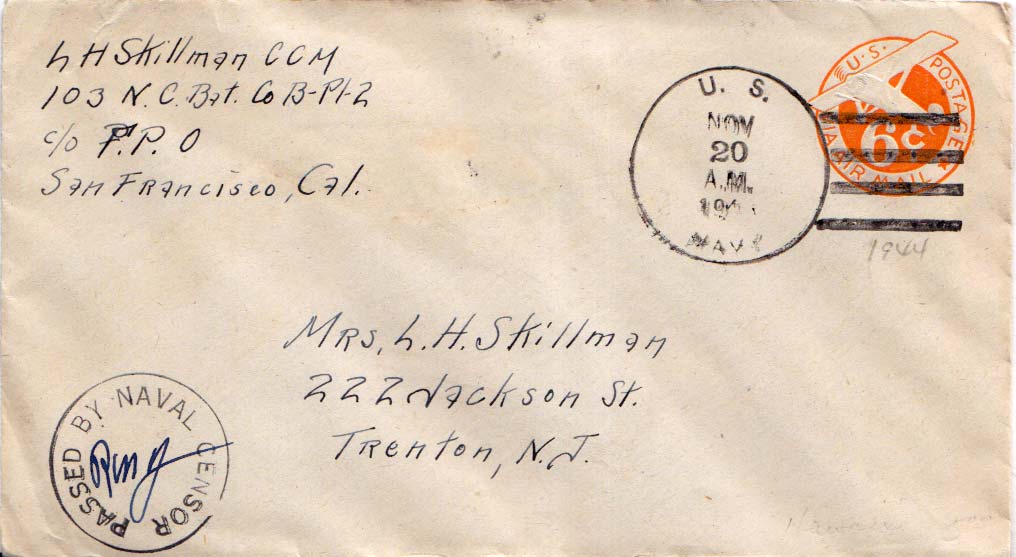 L H Skillman CCM
103 N.C. Bat. Co B-Pl-2
c/o F.P.O
San Francisco, Cal.
U. S.
NOV
20
A.M.
NAVY
U.S. POSTAGE
6¢
VIA AIR MAIL
1944
Mrs. L. H. Skillman
222 Jackson St.
Trenton, N.J.
PASSED BY NAVAL CENSOR